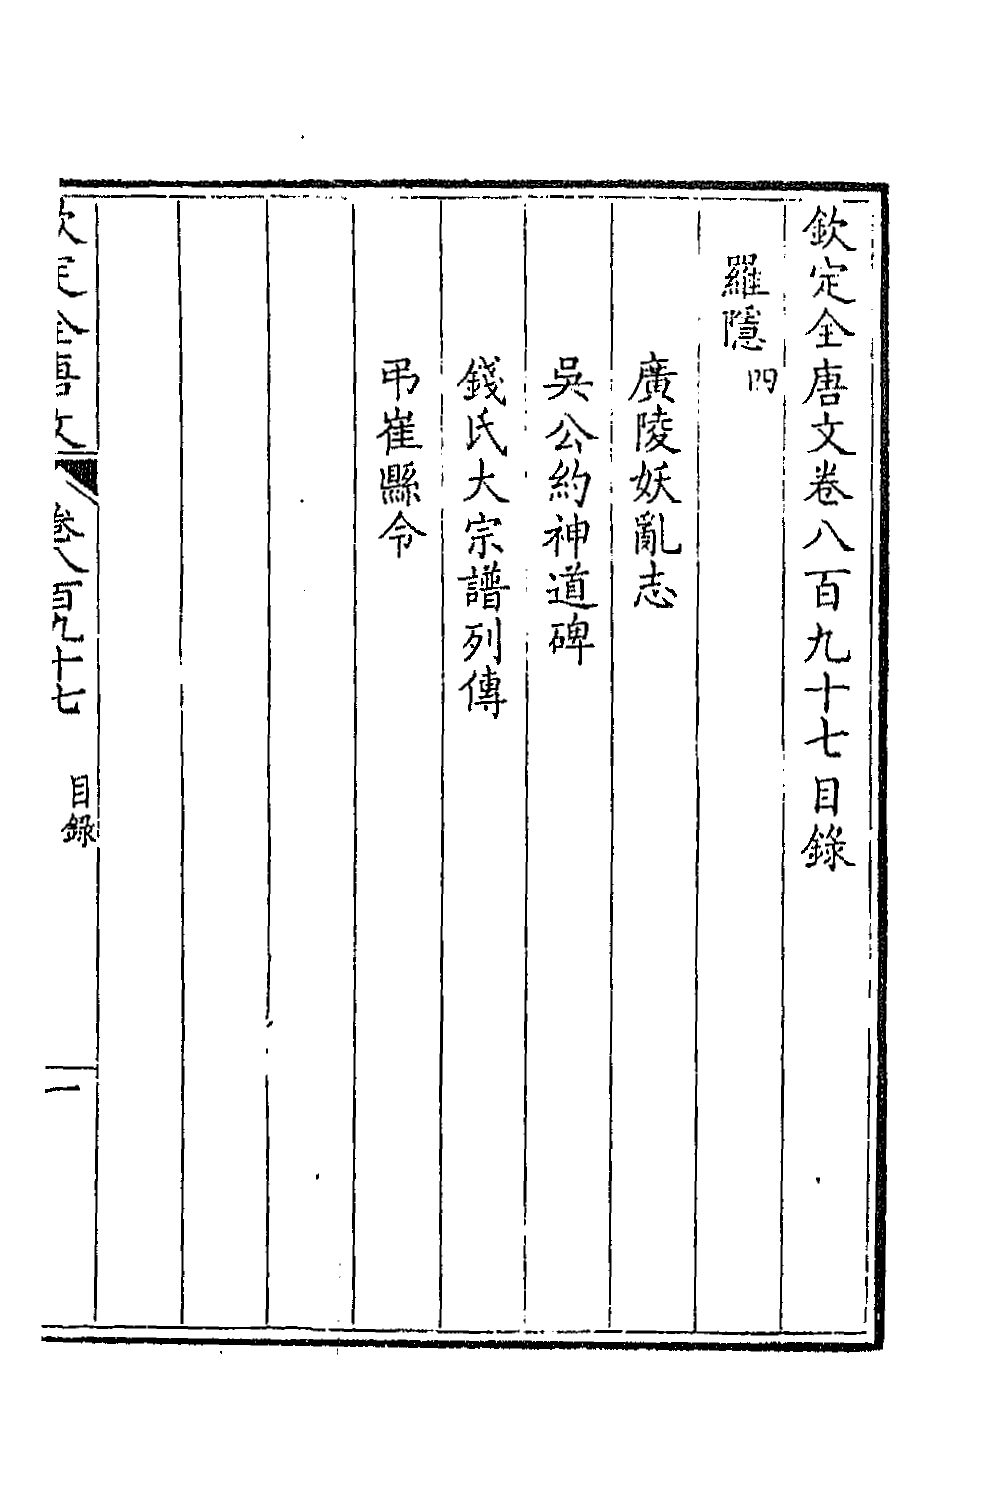 欽定全唐文卷八百九十七目錄
羅隱四
廣陵妖亂志
吳公約神道碑
錢氏大宗譜列傳
弔崔縣令
欽定全唐文 卷八百九十七 目錄 一